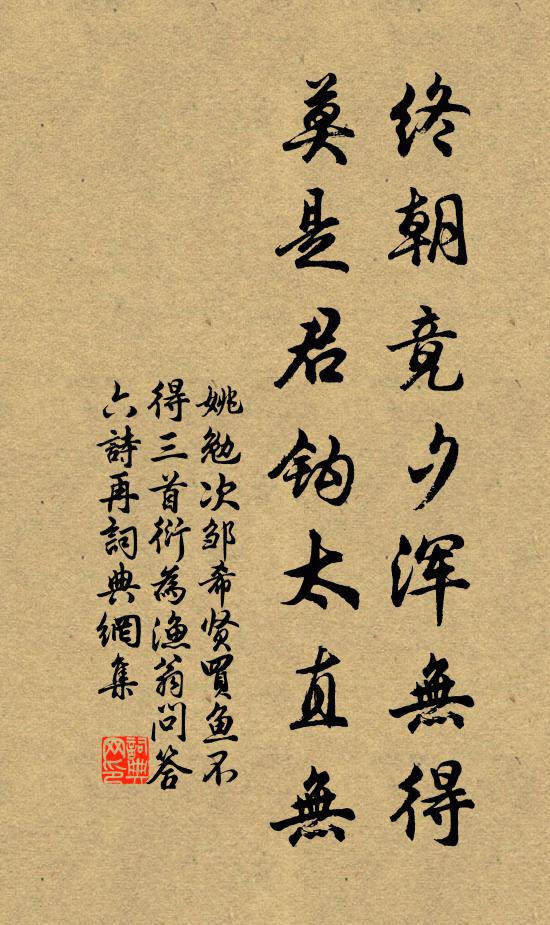 终朝竟夕浑無得
莫是君鈎太直無
姚勉次邹希贤買鱼不
得三首衍為漁翁問答
六詩再詞典網集
詞典
网印